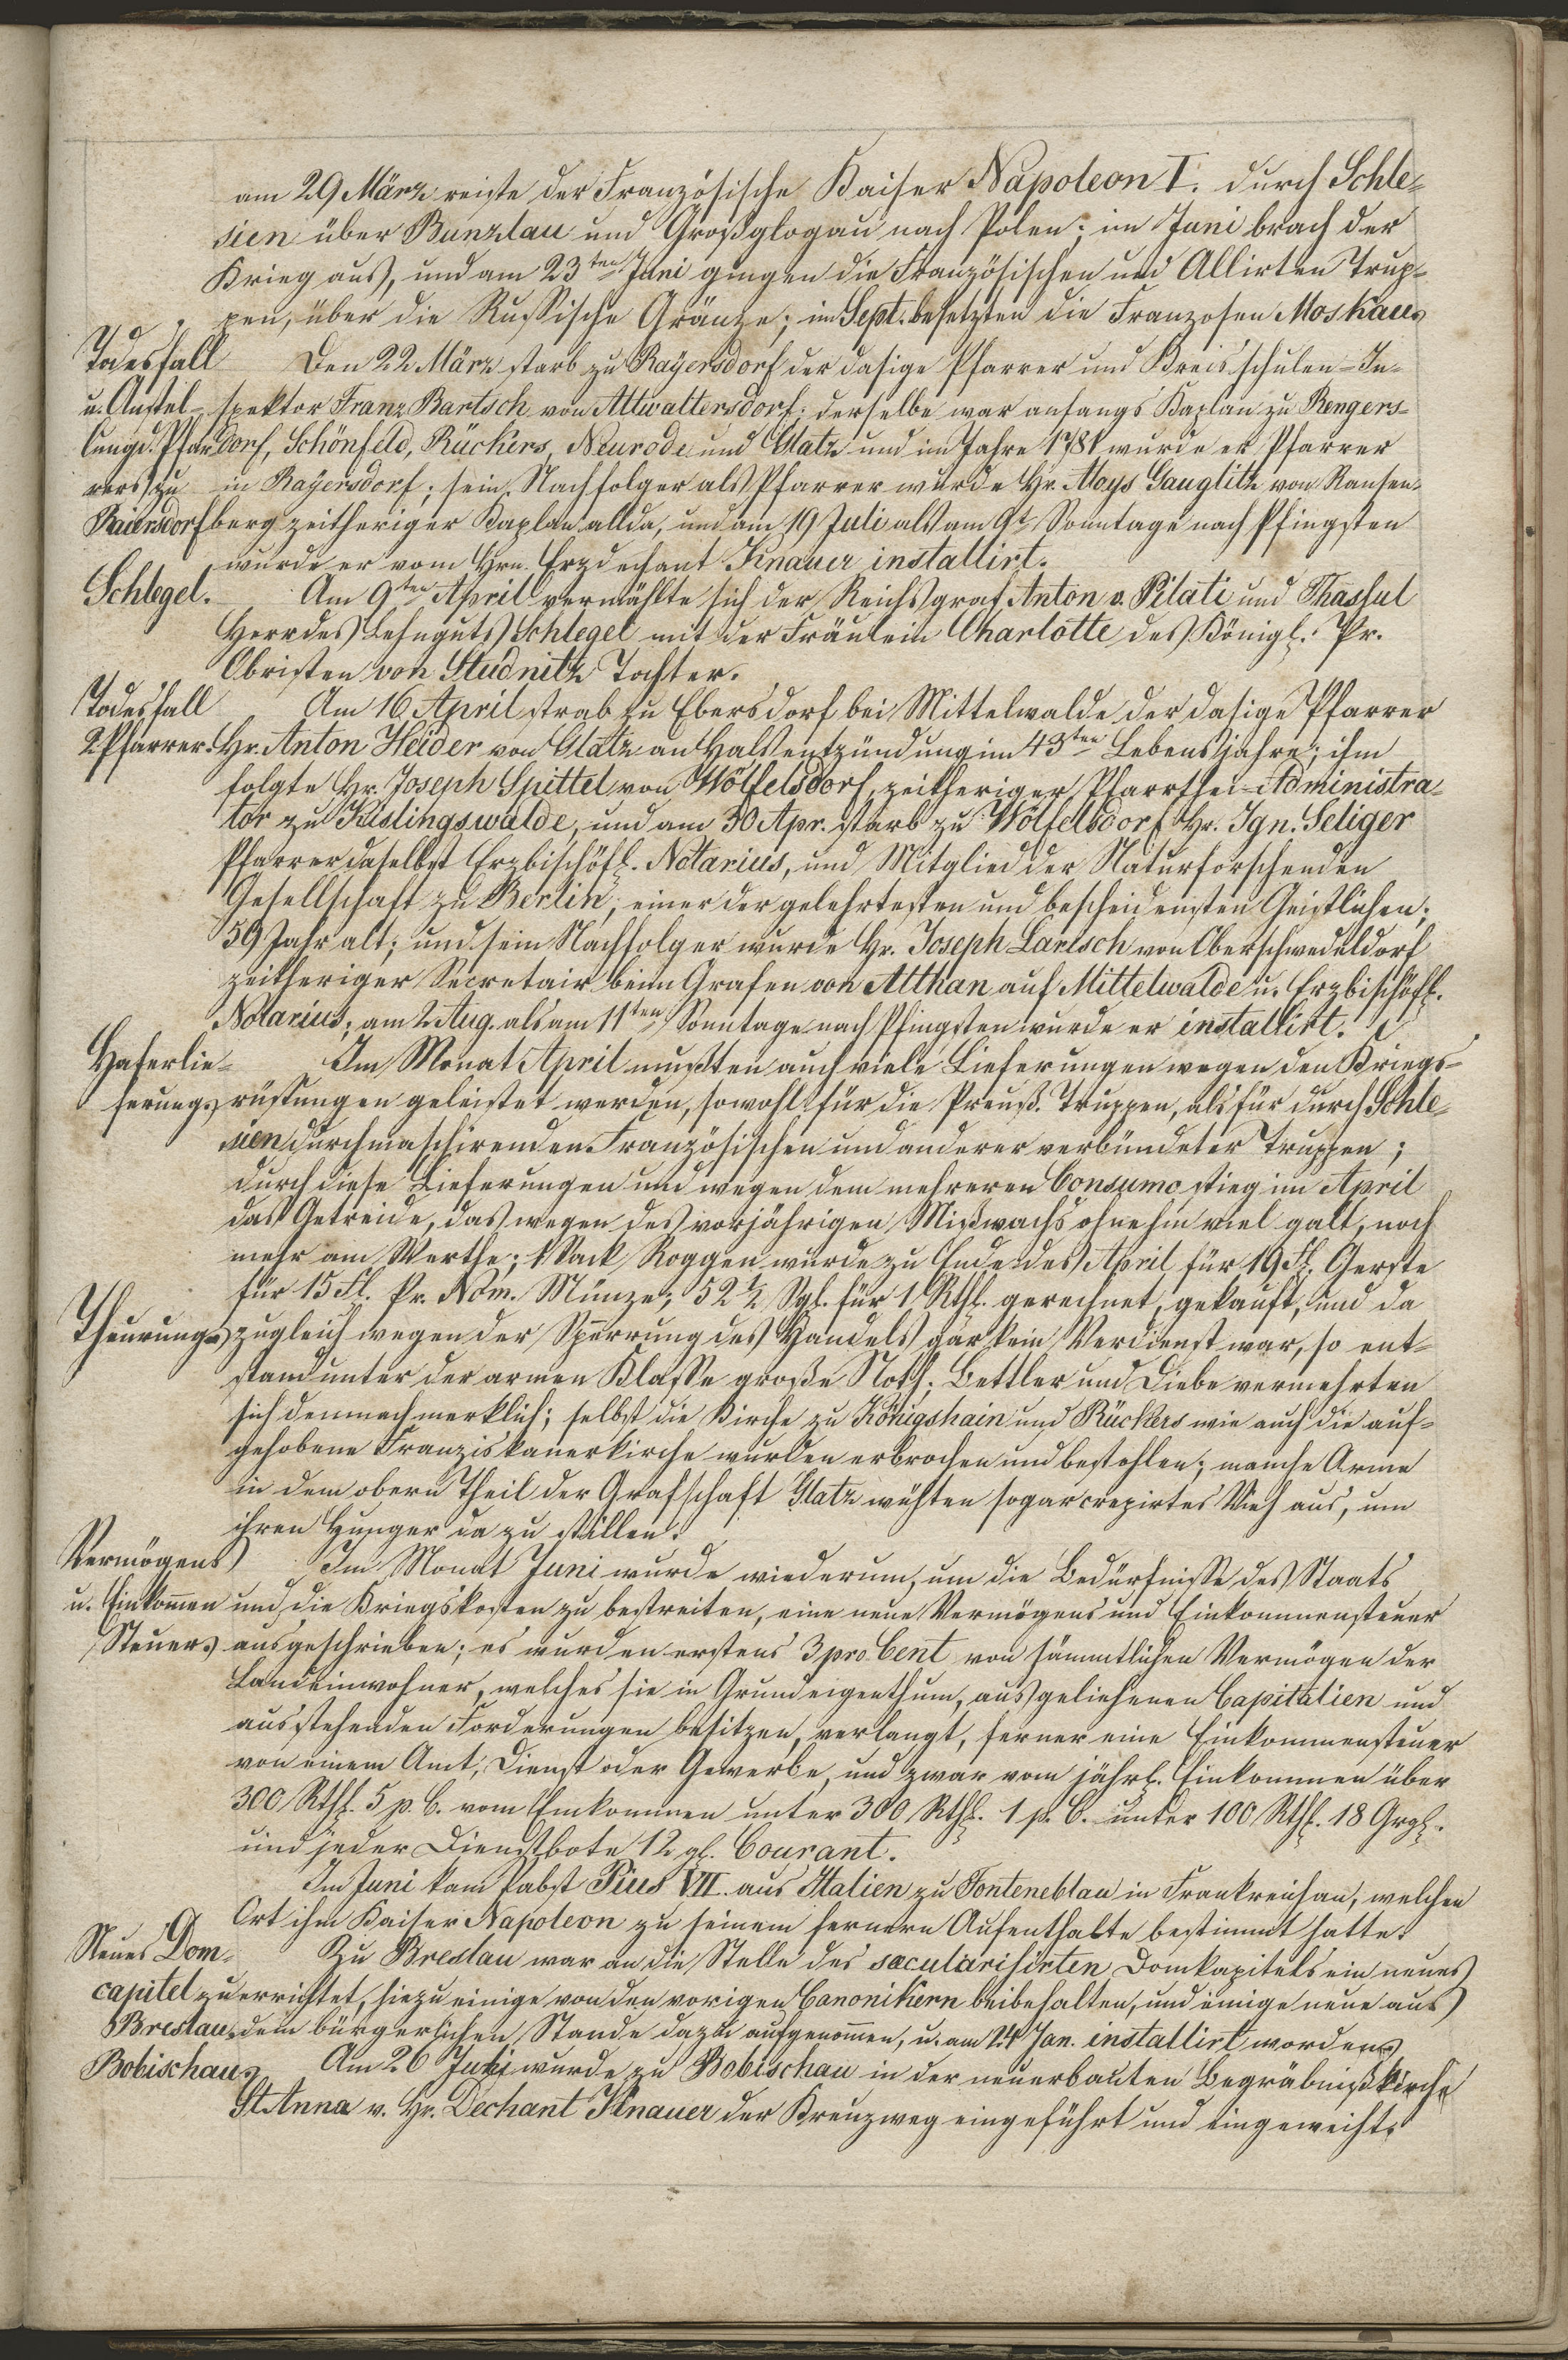 am 29 März reiste der Französische Kaiser Napoleon I. durch Schle-
sien über Bunzlau und Großglogau nach Polen; im Juni brach der
Krieg aus, und am 23ten Juni gingen die Französischen und Allirten Trup-
pen, über die Russische Gränze; im Sept. besetzten die Franzosen Moskau.
Todesfall Den 22 März starb zu Rayersdorf der dasige Pfarrer und Kreisschulen-In-
u. Anstel- spektor Franz Bartsch von Altwaltersdorf; derselbe war anfangs Kaplan zu Rengers-
lung d. Pfar dorf, Schönfeld, Rückers, Neurode und Glatz und im Jahre 1781 wurde er Pfarrer
rers zu in Rayersdorf; sein Nachfolger als Pfarrer wurde Hr. Aloys Gauglitz von Ransen-
Raiersdorf berg zeitheriger Kaplan allda, und am 19 Juli als am 9t Sonntage nach Pfingsten
wurde er vom Hrn. Erzdechant Knauer installirt.
Schlegel. Am 9ten April vermählte sich der Reichsgraf Anton v. Pilati und Thassul
Herr des Lehnguts Schlegel mit der Fräulein Charlotte des Königl. Pr.
Obristen von Studnitz Tochter.
Todesfall Am 16 April strab zu Ebersdorf bei Mittelwalde der dasige Pfarrer
2 Pfarrer. Hr. Anton Heider von Glatz an Halsentzündung im 43ten Lebensjahre; ihm
folgte Hr. Joseph Spittel von Wölfelsdorf, zeitheriger Pfarrthei-Administra-
tor zu Kislingswalde, und am 30 Apr. starb zu Wölfelsdorf Hr. Ign. Seliger
Pfarrer daselbst Erzbischöfl. Notarius, und Mitglied der Naturforschenden
Gesellschaft zu Berlin; einer der gelehrtesten und bescheidensten Geistlichen;
59 Jahr alt; und sein Nachfolger wurde Hr. Joseph Larisch von Oberschwedeldorf
zeitheriger Secretair beim Grafen von Althan auf Mittelwalde u. Erzbischöfl.
Notarius; am 2 Aug. als am 11ten Sonntage nach Pfingsten wurde er installirt.
Haferlie- Im Monat April mußten auch viele Lieferungen wegen den Kriegs-
ferung. rüstungen geleistet werden, sowohl für die Preuß. Truppen, als für durch Schle-
sien durchmaschirenden Französischen und anderer verbündeter Truppen;
durch diese Lieferungen und wegen dem mehreren Consumo stieg im April
das Getreide, das wegen des vorjährigen Mißwachs ohnehin viel galt, noch
mehr am Werthe; 1 Sack Roggen wurde zu Ende des April für 19 Fl. Gerste
für 15 Fl. Pr. Nom. Münze; 52 1/2 Sgl. für 1 Rthl. gerechnet, gekauft, und da
Theurung. zugleich wegen der Sperrung des Handels gar kein Verdienst war, so ent-
stand unter der armen Klasse große Noth; Bettler und Diebe vermehrten
sich demnach merklich; selbst die Kirche zu Königshain und Rückers wie auch die auf-
gehobene Franziskanerkirche wurden erbrochen und bestohlen; manche Arme
in dem obern Theil der Grafschaft Glatz wühten sogar crepirtes Vieh aus, um
ihren Hunger da zu stillen.
Vermögens Im Monat Juni wurde wiederum, um die Bedürfnisse des Staats
u. Einkom̅en und die Kriegskosten zu bestreiten, eine neue Vermögens und Einkommensteuer
Steuer. ausgeschrieben; es wurden erstens 3 pro Cent von sämmtlichen Vermögen der
Landeinwohner, welches sie in Grundeigenthum, ausgeliehenen Capitalien und
ausstehenden Forderungen besitzen, verlangt, ferner eine Einkommensteuer
von einem Amt, Dienst oder Gewerbe, und zwar vom jährl. Einkommen über
300 Rthl. 5 p. C. vom Einkommen unter 300 Rthl. 1 p. C. unter 100 Rthl. 18 Grgl.
und jeder Dienstbote 12 gl. Courant.
Im Juni kam Pabst Pius VII. aus Italien zu Fonteneblau in Frankreich an, welchen
Ort ihm Kaiser Napoleon zu seinem fernern Aufenthalte bestimmt hatte.
Neues Dom- Zu Breslau war an die Stelle des sæcularisirten Domkapitels ein neues
capitel zu errichtet, hiezu einige von den vorigen Canonikern beibehalten, und einige neue aus
Breslau. dem bürgerlichen Stande dazu aufgenom̅en, u. am 24 Jan. installirt worden.
Bobischau. Am 26 Juli wurde zu Bobischau in der neuerbauten Begräbnißkirche
St Anna v. Hr. Dechant Knauer der Kreuzweg eingeführt und eingeweiht.